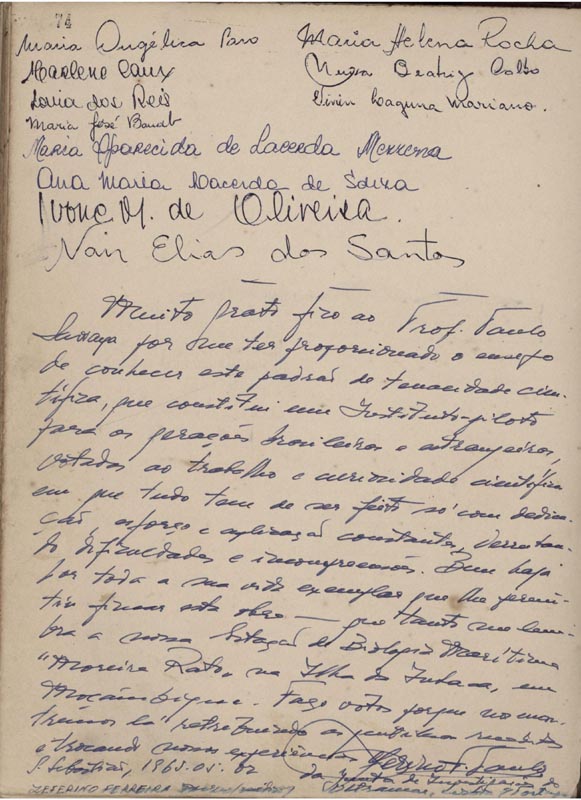 74
Maria Angélica Paro
Maria Helena Rocha
Marlene Caux
Neusa Beatriz
Sonia dos Reis
Laguna Mariano.
Maria José
Maria Aparecida de Lacerda
Ana Maria Lacerda de Souza
Ivone M. de Oliveira.
Nair Elias dos Santos
Muito grato fico ao Prof. Paulo
Sawaya por me ter proporcionado o ensejo
de conhecer este padrão de tenacidade cien-
tífica, que constitui um Instituto-piloto
para as gerações brasileiras e estrangeiras,
votadas ao trabalho e curiosidade científica
em que tudo tem de ser feito só com dedica-
ção, esforço e aplicação constantes, derrotan-
do dificuldades e incompreensões. Bem haja
por toda a sua vida exemplar que lhe permi-
tiu firmar esta obra — que tanto me lem-
bra a nossa Estação de Biologia Marítima
"Moreira Rato", na Ilha da Inhaca, em
Moçambique. Faço votos porque nos encon-
tremos lá retribuindo as gentilezas recebidas
e trocando novas experiências
S. Sebastião, 1965.01.02
da Junta de Investigações do
Ultramar,
ZEFERINO FERREIRA